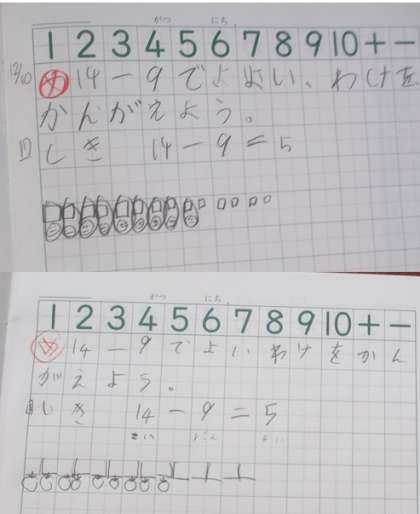 がつ にち
1 2 3 4 5 6 7 8 9 10 + −
12/10 め 14 − 9 でよよい、わけを
かんがえよう。
しき 14 − 9 = 5
がつ にち
1 2 3 4 5 6 7 8 9 10 + −
め 14 − 9 でよいわけをかん
がえよう。
しき 14 − 9 = 5